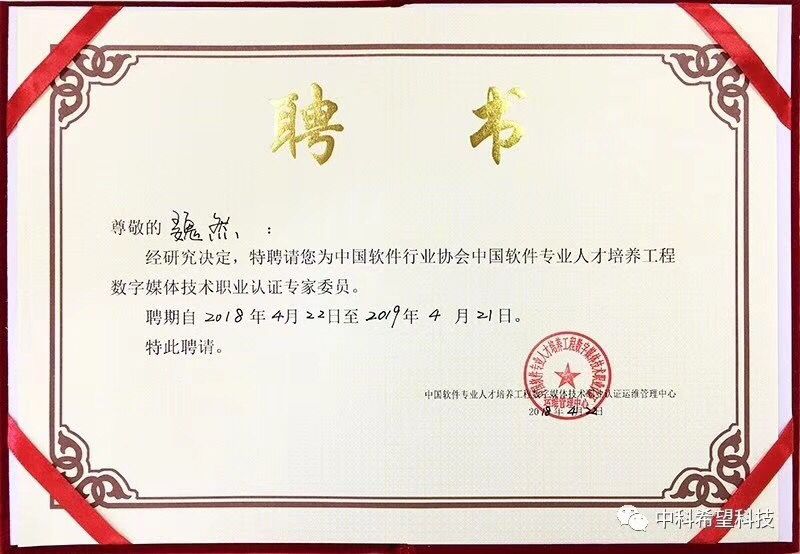 聘 书
尊敬的 魏然 :
经研究决定，特聘请您为中国软件行业协会中国软件专业人才培养工程
数字媒体技术职业认证专家委员。
聘期自 2018 年 4月 22日至 2019年 4 月 21日。
特此聘请。
中国软件专业人才培养工程数字媒体技术职业认证运维管理中心
2018 年 4月 22日
运维管理中心
中科希望科技